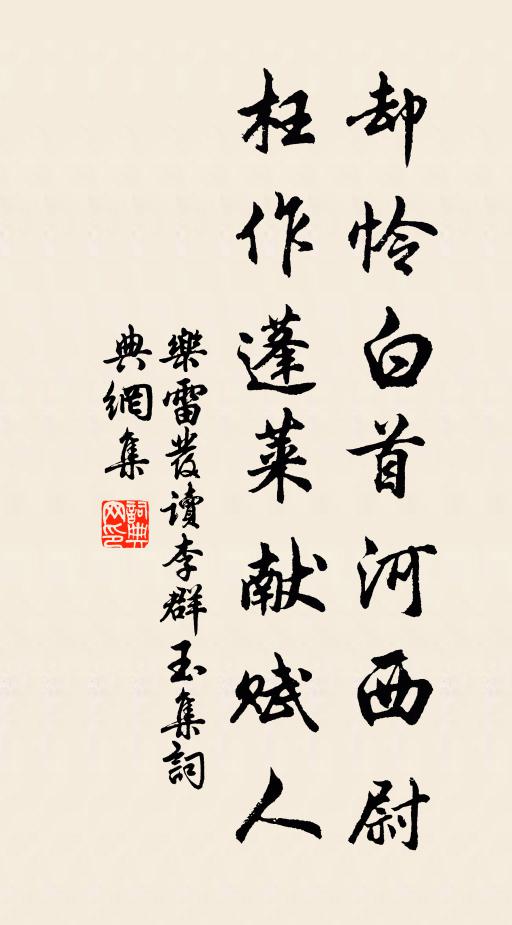 却怜白首河西尉
枉作蓬莱献赋人
樂雷發讀李群玉集詞
典網集
詞典
网印